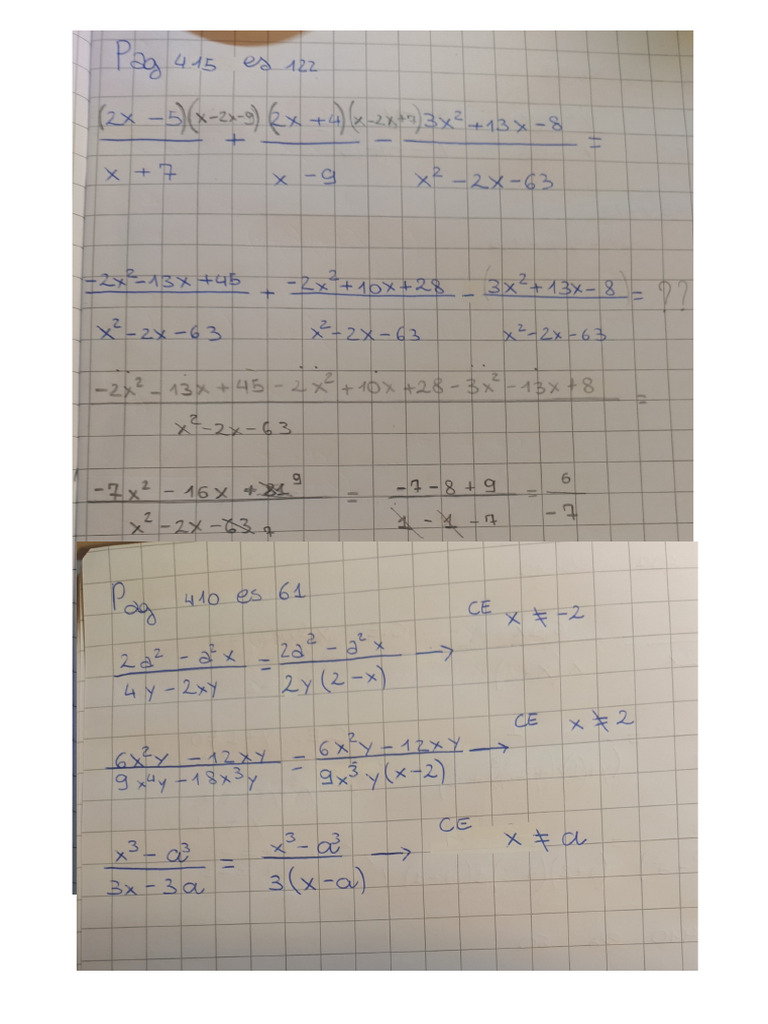 Pag 415 es 122
(2x - 5)(x-2x-9) / x + 7 + (2x + 4)(x-2x+7) / x - 9 - 3x² + 13x - 8 / x² - 2x - 63 =
-2x² - 13x + 45 / x² - 2x - 63 + -2x² + 10x + 28 / x² - 2x - 63 - (3x² + 13x - 8) / x² - 2x - 63 = ??
-2x² - 13x + 45 - 2x² + 10x + 28 - 3x² - 13x + 8 / x² - 2x - 63 =
-7x² - 16x + 81 9 / x² - 2x - 63 7 = -7 - 8 + 9 / 1 - 1 - 7 = 6 / -7
Pag 410 es 61
2a² - a²x / 4y - 2xy = 2a² - a²x / 2y(2 - x) → CE x ≠ -2
6x²y - 12xy / 9x⁴y - 18x³y = 6x²y - 12xy / 9x³y(x - 2) → CE x ≠ 2
x³ - a³ / 3x - 3a = x³ - a³ / 3(x - a) → CE x ≠ a